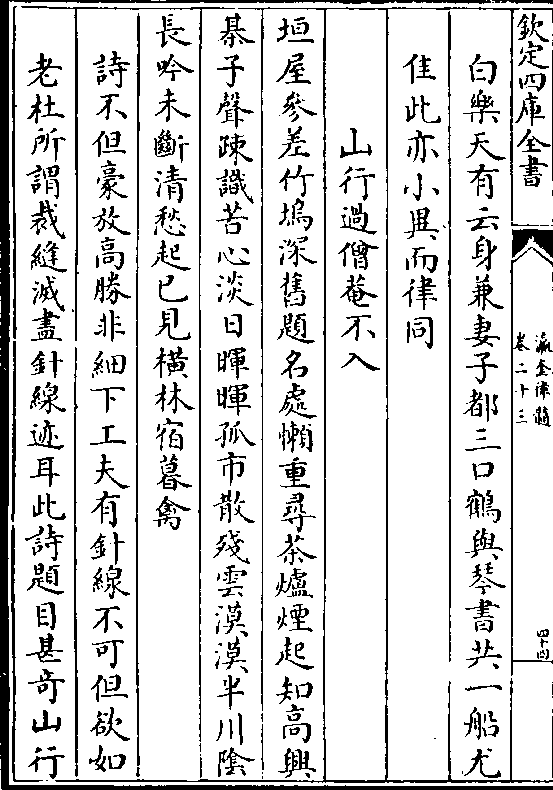 欽定四庫全書
瀛奎律髓
卷二十三
四十四
白樂天有云身兼妻子都三口鶴與琴書共一船尤
佳此亦小異而律同
山行過僧菴不入
垣屋參差竹塢深舊題名處懶重尋茶爐煙起知高興
棊子聲疎識苦心淡日暉暉孤市散殘雲漠漠半川陰
長吟未斷清愁起已見橫林宿暮禽
詩不但豪放高勝非細下工夫有針線不可但欲如
老杜所謂裁縫滅盡針線迹耳此詩題目甚奇山行